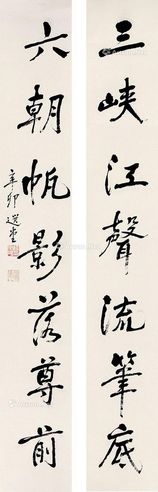 三峽江聲流筆底
六朝帆影落尊前
辛卯 選堂